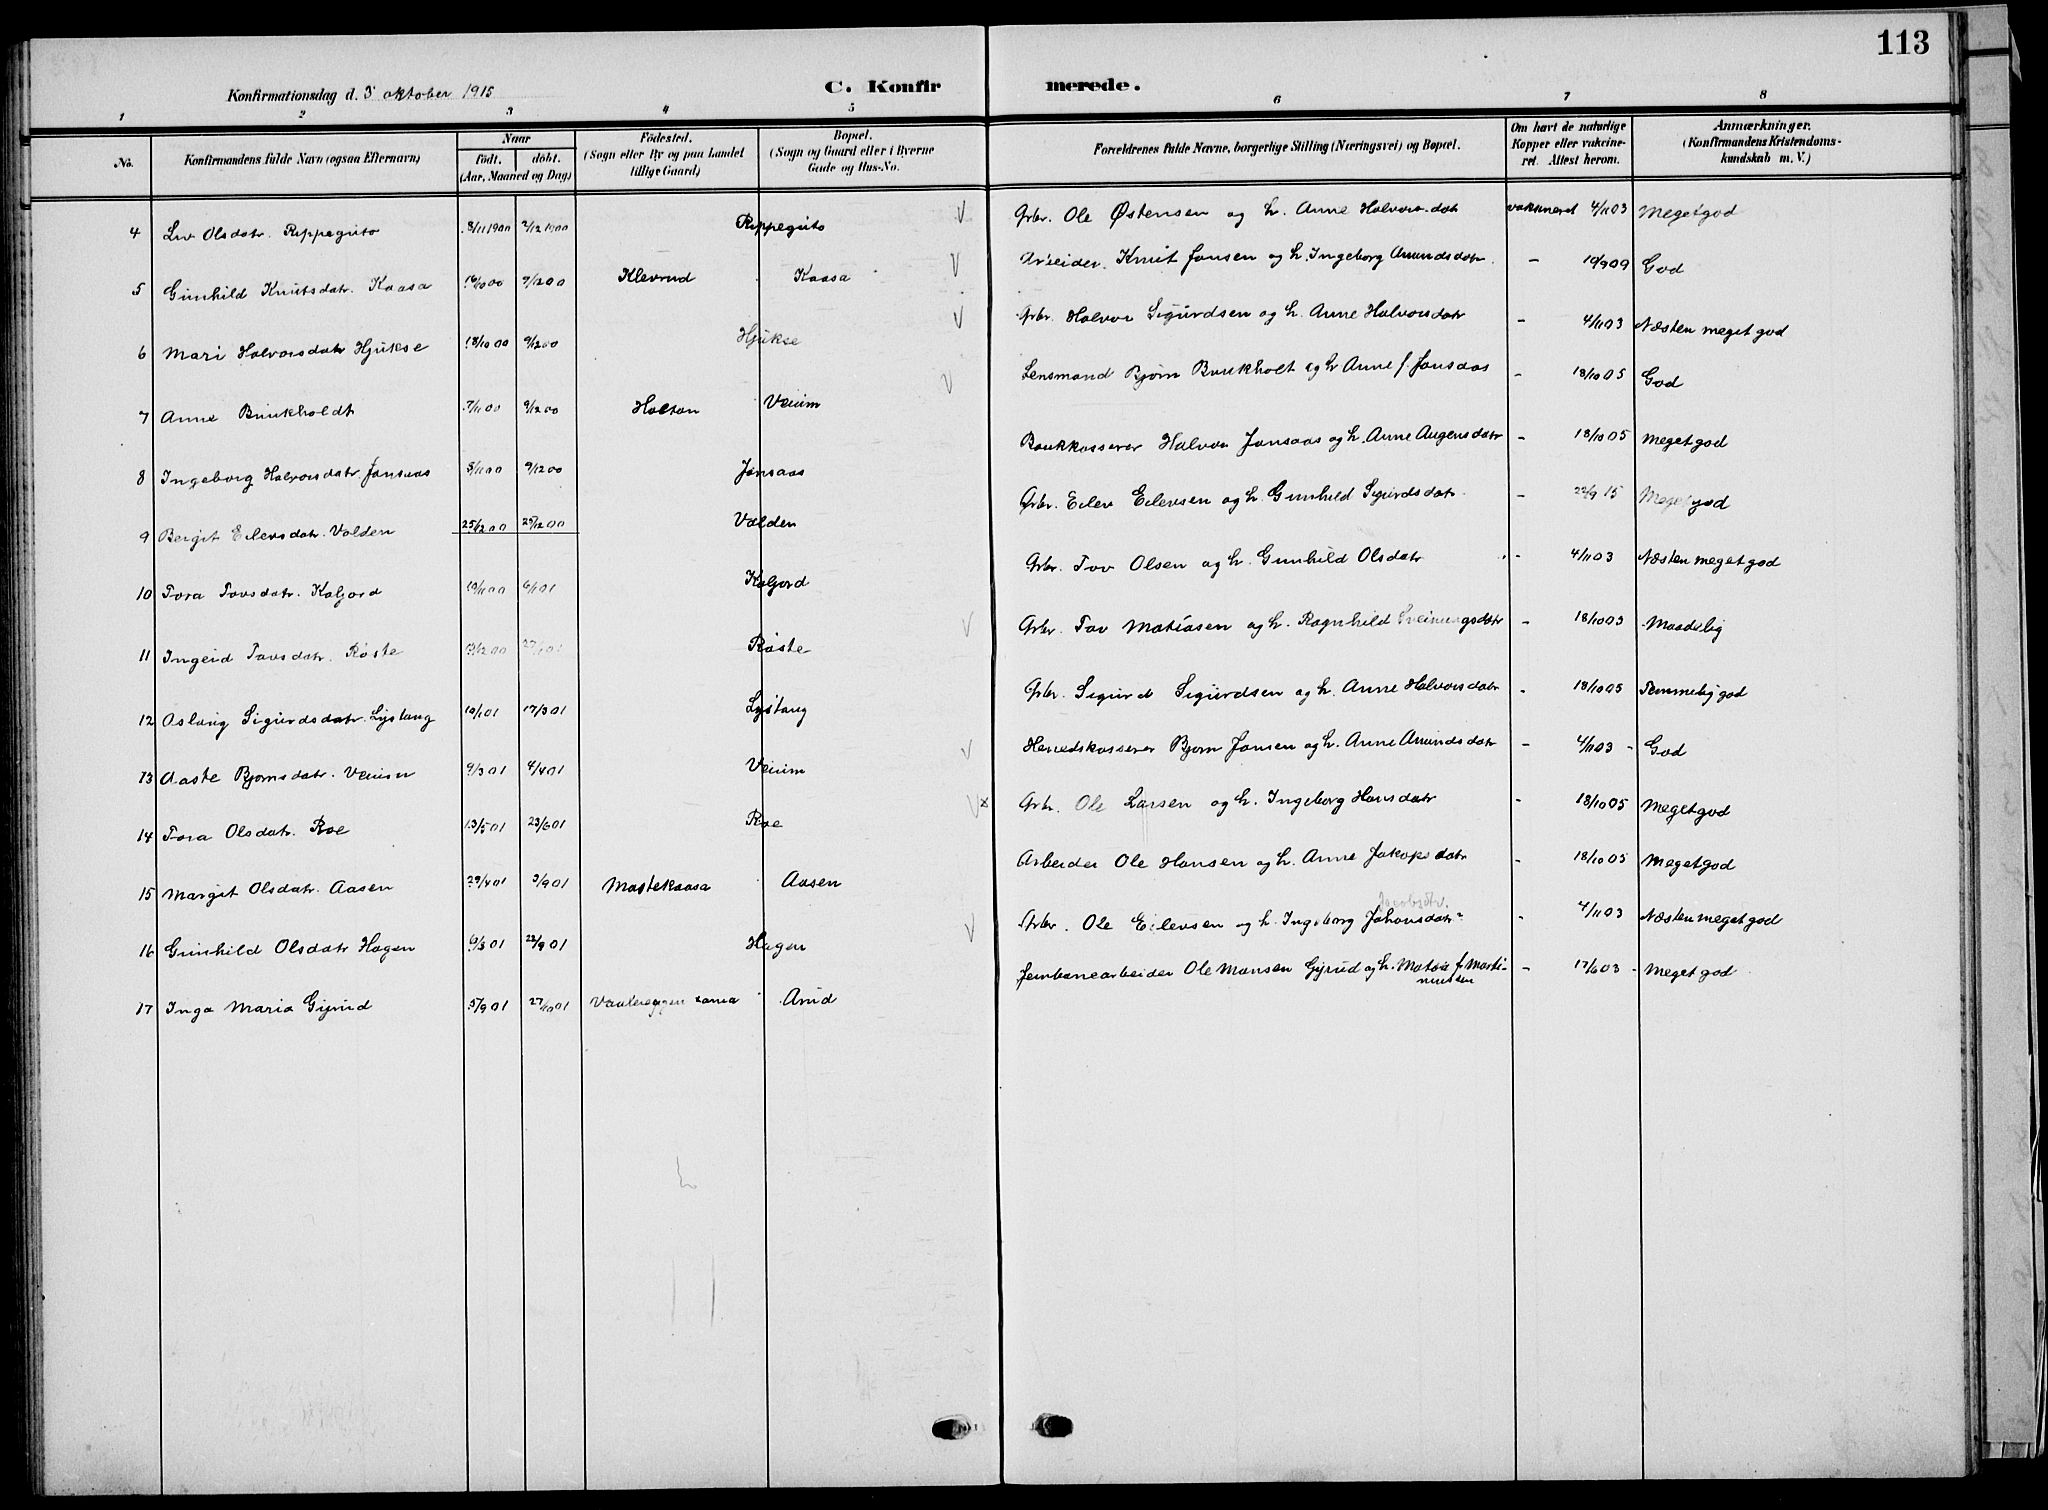 113
Konfirmationsdag d. 3 oktober 1915 C. Konfirmerede.
1 2 3 4 5 6 7 8
No. Konfirmandens fulde Navn (ogsaa Efternavn) Naar født. døbt. (Aar, Maaned og Dag) Fødested. (Sogn eller By og paa Landet tillige Gaard) Bopæl. (Sogn og Gaard eller i Byerne Gade og Hus-No. Forældrenes fulde Navne, borgerlige Stilling (Næringsvei) og Bopæl. Om havt de naturlige Kopper eller vakcineret. Attest herom. Anmærkninger. (Konfirmandens Kristendomskundskab m. V.)
4 Liv Olsdatr. Rippeguto 8/11 1900 2/12 1900 Rippeguto Grbr. Ole Østensen og h. Anne Halvorsdatr vaksineret 4/11 03 Megetgod
5 Gunhild Knutsdatr. Kaasa 16/10 00 9/12 00 Klevrud Kaasa Arbeider. Knut Jonsen og h. Ingeborg Amundsdatr. - 10/9 09 God
6 Mari Halvorsdatr Hjukse 18/10 00 9/12 00 Hjukse Grbr. Halvor Sigurdsen og h. Anne Halvorsdatr - 4/11 03 Næsten meget god
7 Anne Bunkholdt 7/11 00 9/12 00 Holtan Veium Lensmand Bjørn Bunkholt og h Anne f. Jonsaas - 18/10 05 God
8 Ingeborg Halvorsdatr. Jonsaas 5/11 00 9/12 00 Jonsaas Bankkasserer Halvor Jonsaas og h. Anne Augensdatr - 18/10 05 Megetgod
9 Bergit Eilevsdatr. Valden 25/12 00 Valden Grbr. Eilev Eilevsen og h. Gunhild Sigurdsdatr. - 22/9 15 Megetgod
10 Tora Tovsdatr. Kaljord 10/11 00 6/1 01 Kaljord Grbr. Tov Olsen og h. Gunhild Olsdatr - 4/11 03 Næsten megetgod
11 Ingeid Tovsdatr. Røste Røste Grbr. Tov Matiasen og h. Ragnhild Sveinungsdatr - 18/10 03 Maadelig
12 Aslaug Sigurdsdatr. Lystang 10/1 01 17/3 01 Lystang Grbr. Sigurd Sigurdsen og h. Anne Halvorsdatr - 18/10 05 Temmelig god
13 Aaste Bjørnsdatr. Veium 9/3 01 4/4 01 Veium Herredskasserer Bjørn Jonsen og h. Anne Amundsdatr - 4/11 03 - God
14 Tora Olsdatr. Roe 13/5 01 23/6 01 Roe x Grbr. Ole Larsen og h. Ingeborg Hansdatr - 18/10 05 Megetgod
15 Margit Olsdatr. Aasen 29/4 01 Mastekaasa Aasen Arbeider Ole Hansen og h. Anne Jakopsdatr - 18/10 05 Megetgod
Jacobsdtr.
16 Gunhild Olsdatr Hagen 6/3 01 22/9 01 Hagen Grbr. Ole Eilevsen og h. Ingeborg Johansdatr? - 4/11 03 Næsten megetgod
17 Inga Maria Gyrud 5/9 01 27/10 01 Arud Jernbanearbeider Ole Mansen Gyrud og h. f. Martinussen - 17/6 03 - Meget god